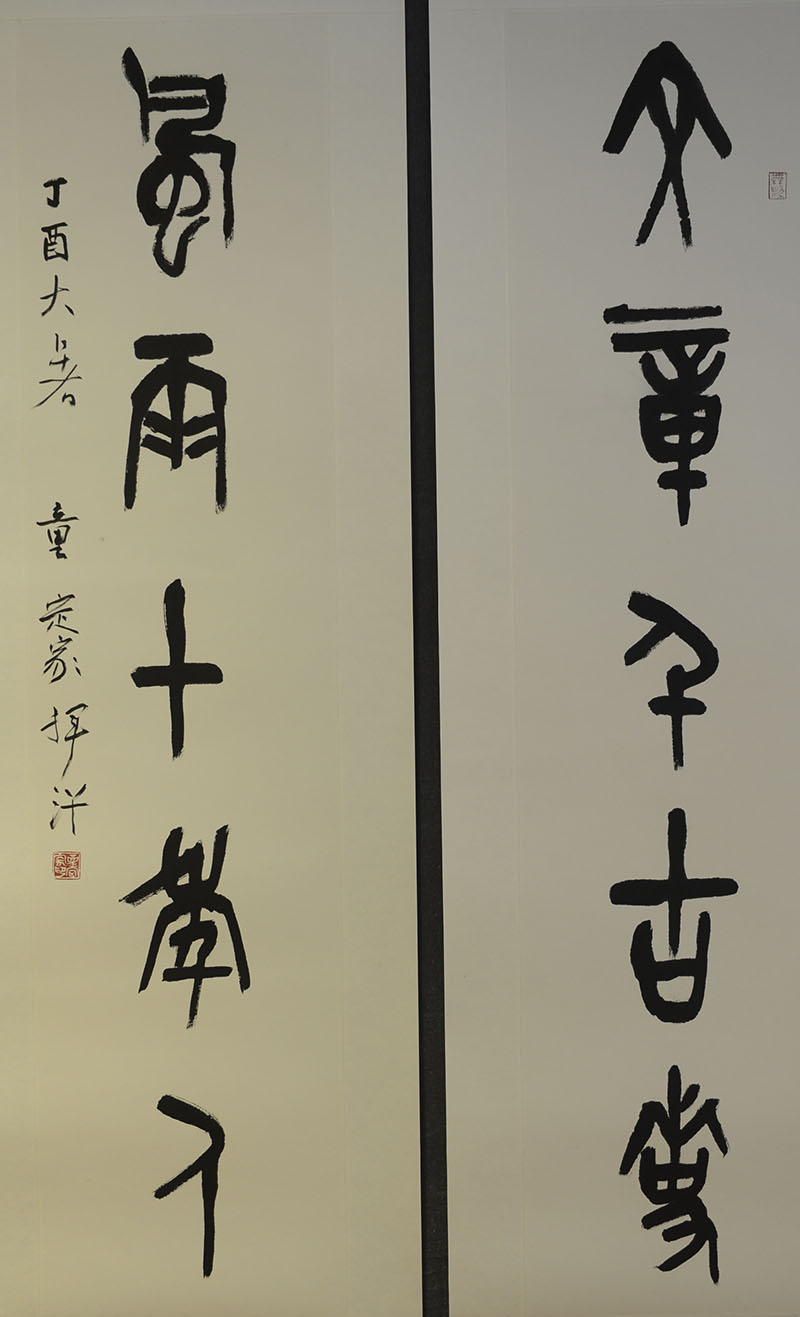 文章千古事
風雨十年人
丁酉大暑 童定家揮汗